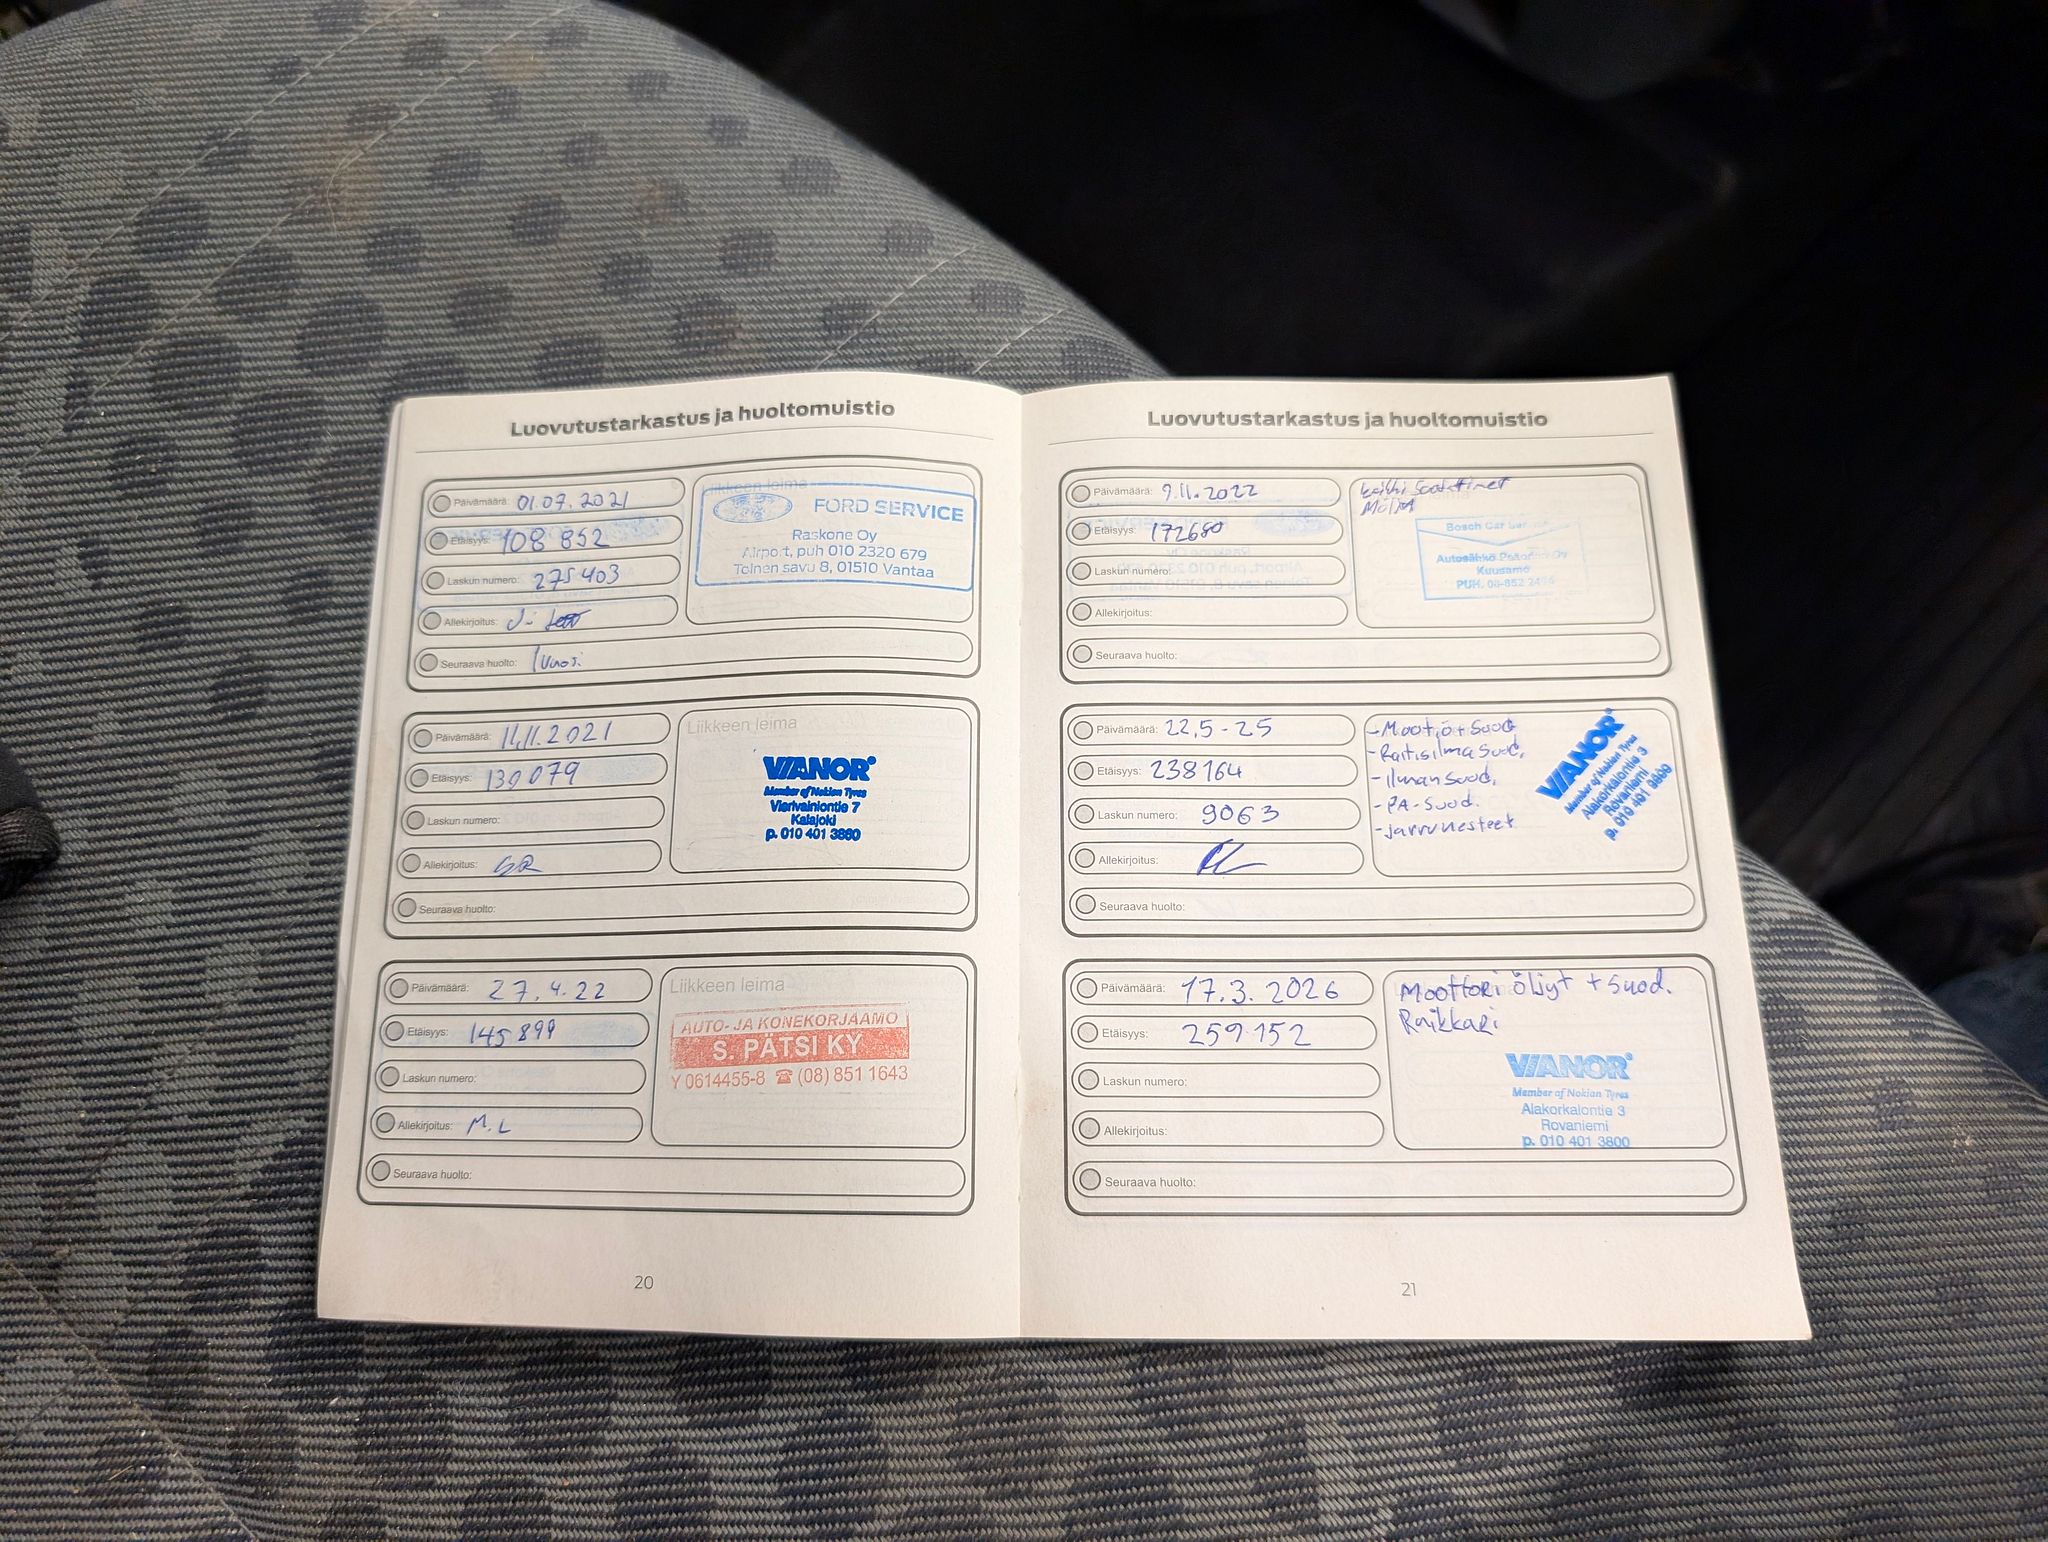 Luovutustarkastus ja huoltomuistio
Päivämäärä: 01.07.2021
Etäisyys: 108 852
Laskun numero: 275403
Allekirjoitus:
Seuraava huolto: 1 Vuosi
Liikkeen leima
FORD SERVICE
Raskone Oy
Airport, puh 010 2320 679
Toinen savu 8, 01510 Vantaa
Päivämäärä: 11.11.2021
Etäisyys: 130079
Laskun numero:
Allekirjoitus: SR
Seuraava huolto:
Liikkeen leima
VIANOR
Member of Nokian Tyres
Vierivainiontie 7
Kalajoki
p. 010 401 3860
Päivämäärä: 27.4.22
Etäisyys: 145899
Laskun numero:
Allekirjoitus: M.L
Seuraava huolto:
Liikkeen leima
AUTO- JA KONEKORJAAMO
S. PÄTSI KY
Y 0614455-8 ☎ (08) 851 1643
20
Luovutustarkastus ja huoltomuistio
Päivämäärä: 9.11.2022
Etäisyys: 172680
Laskun numero:
Allekirjoitus:
Seuraava huolto:
Kaikki Suodattimet
Bosch Car Ser
Autosähkö Oy
Kuusamo
PUH. 08-852
Päivämäärä: 22.5-25
Etäisyys: 238164
Laskun numero: 9063
Allekirjoitus:
Seuraava huolto:
- Moot.ö + Suod
- Raitisilmasuod.
- Ilmansuod.
- PA-Suod.
- Jarrunesteet
VIANOR
Member of Nokian Tyres
Alakorkalontie 3
Rovaniemi
p. 010 401 3800
Päivämäärä: 17.3.2026
Etäisyys: 259152
Laskun numero:
Allekirjoitus:
Seuraava huolto:
Moottori öljyt + suod.
Raikkari
VIANOR
Member of Nokian Tyres
Alakorkalontie 3
Rovaniemi
p. 010 401 3800
21